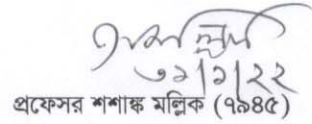 ৩১|১|২২
প্রফেসর শশাঙ্ক মল্লিক (৭৯৪৫)